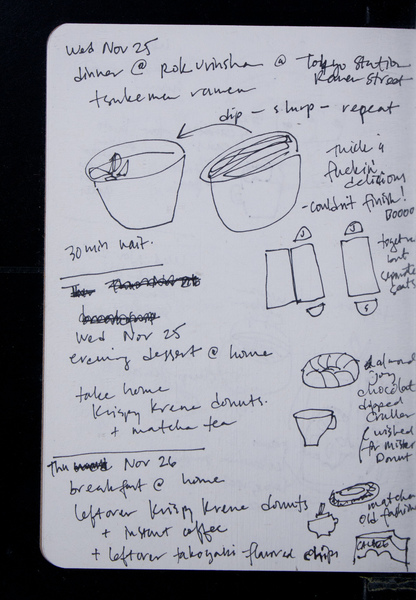 Wed Nov 25
dinner @ Rokurinsha @ Tokyo Station
Ramen Street
tsukemen ramen
dip – slurp – repeat
thick &
fuckin'
delicious
- couldn't finish!
Booooo
30 min wait.
together
but
separate
seats
Wed Nov 25
evening dessert @ home
take home
Krispy Kreme donuts.
+ matcha tea
almond
joy
chocolate
dipped
cruller
(wished
for Mister
Donut
Thu Nov 26
breakfast @ home
leftover Krispy Kreme donuts
+ instant coffee
+ leftover takoyaki flavored chips
matcha
old fashion